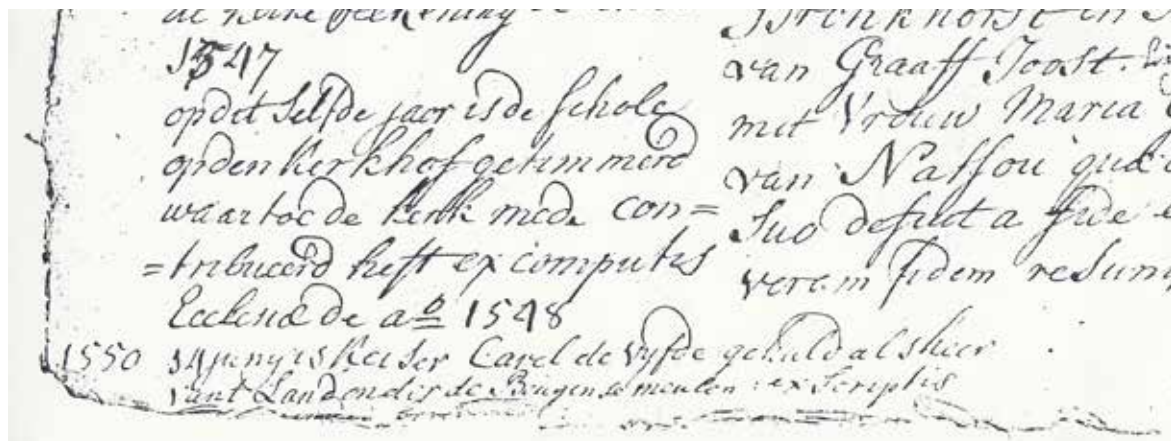 1547
op dit selfde jaer is de schole
op den kerkhof getimmerd
waar toe de kerk mede con=
=tribueerd heft ex computis
Ecclesiæ de aº 1548
1550 14 juny is Keiser Carel de vyfde gehuld als heer
vant Land onder de Beugense meulen : ex scriptis
Bronkhorst en
van Graaff Joost.
met Vrouw Maria
van Nassou quæ
suo defecit a fide
veram fidem resum